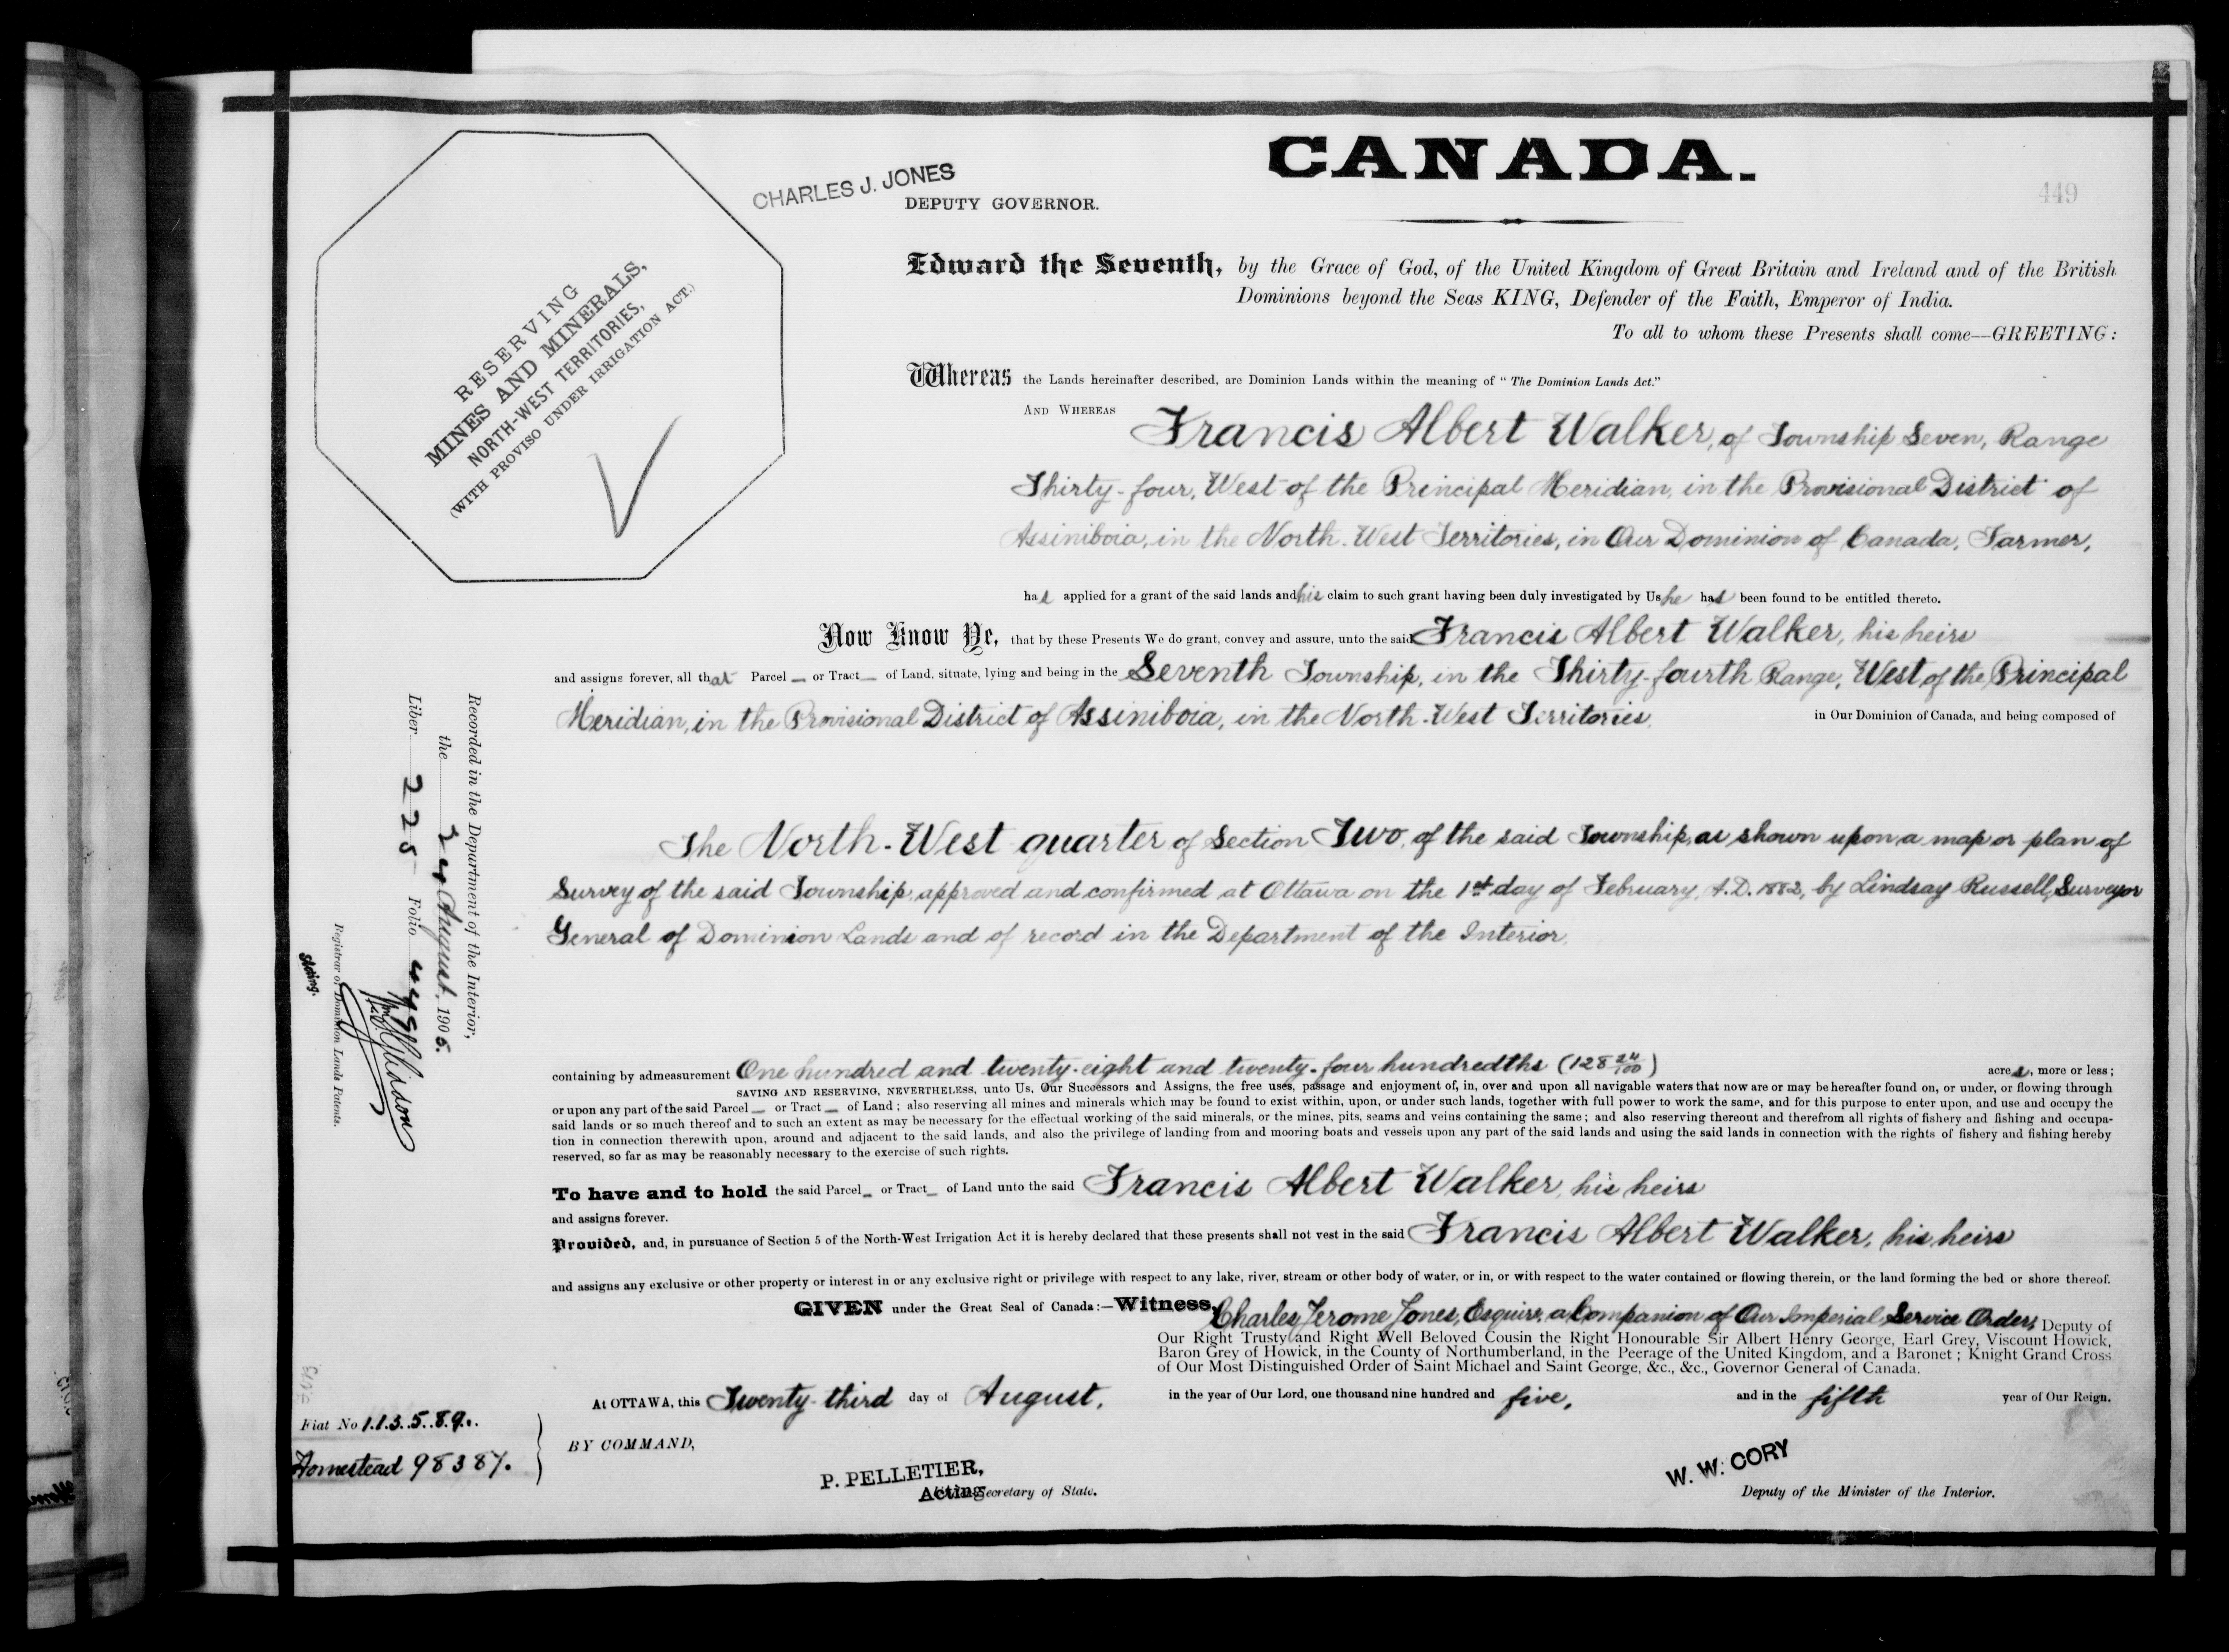 CANADA.
449
CHARLES J. JONES
DEPUTY GOVERNOR.
RESERVING
MINES AND MINERALS,
NORTH-WEST TERRITORIES,
(WITH PROVISO UNDER IRRIGATION ACT.)
Edward the Seventh, by the Grace of God, of the United Kingdom of Great Britain and Ireland and of the British
Dominions beyond the Seas KING, Defender of the Faith, Emperor of India.
To all to whom these Presents shall come—GREETING:
Whereas the Lands hereinafter described, are Dominion Lands within the meaning of "The Dominion Lands Act."
AND WHEREAS Francis Albert Walker, of Township Seven, Range
Thirty-four, West of the Principal Meridian, in the Provisional District of
Assiniboia, in the North-West Territories, in Our Dominion of Canada, Farmer,
has applied for a grant of the said lands and his claim to such grant having been duly investigated by Us he has been found to be entitled thereto.
Now Know Ye, that by these Presents We do grant, convey and assure, unto the said Francis Albert Walker, his heirs
and assigns forever, all that Parcel — or Tract — of Land, situate, lying and being in the Seventh Township, in the Thirty-fourth Range, West of the Principal
Meridian, in the Provisional District of Assiniboia, in the North-West Territories, in Our Dominion of Canada, and being composed of
The North-West quarter of Section Two, of the said Township, as shown upon a map or plan of
Survey of the said Township, approved and confirmed at Ottawa on the 1st day of February, A.D. 1882, by Lindsay Russell, Surveyor
General of Dominion Lands and of record in the Department of the Interior,
containing by admeasurement One hundred and twenty-eight and twenty-four hundredths (128 24/100) acres, more or less;
SAVING AND RESERVING, NEVERTHELESS, unto Us, Our Successors and Assigns, the free uses, passage and enjoyment of, in, over and upon all navigable waters that now are or may be hereafter found on, or under, or flowing through
or upon any part of the said Parcel — or Tract — of Land; also reserving all mines and minerals which may be found to exist within, upon, or under such lands, together with full power to work the same, and for this purpose to enter upon, and use and occupy the
said lands or so much thereof and to such an extent as may be necessary for the effectual working of the said minerals, or the mines, pits, seams and veins containing the same; and also reserving thereout and therefrom all rights of fishery and fishing and occupa-
tion in connection therewith upon, around and adjacent to the said lands, and also the privilege of landing from and mooring boats and vessels upon any part of the said lands and using the said lands in connection with the rights of fishery and fishing hereby
reserved, so far as may be reasonably necessary to the exercise of such rights.
To have and to hold the said Parcel — or Tract — of Land unto the said Francis Albert Walker, his heirs
and assigns forever.
Provided, and, in pursuance of Section 5 of the North-West Irrigation Act it is hereby declared that these presents shall not vest in the said Francis Albert Walker, his heirs
and assigns any exclusive or other property or interest in or any exclusive right or privilege with respect to any lake, river, stream or other body of water, or in, or with respect to the water contained or flowing therein, or the land forming the bed or shore thereof.
GIVEN under the Great Seal of Canada:—Witness, Charles Jerome Jones, Esquire, a Companion of Our Imperial Service Order, Deputy of
Our Right Trusty and Right Well Beloved Cousin the Right Honourable Sir Albert Henry George, Earl Grey, Viscount Howick,
Baron Grey of Howick, in the County of Northumberland, in the Peerage of the United Kingdom, and a Baronet; Knight Grand Cross
of Our Most Distinguished Order of Saint Michael and Saint George, &c., &c., Governor General of Canada.
At OTTAWA, this Twenty-third day of August, in the year of Our Lord, one thousand nine hundred and five, and in the fifth year of Our Reign.
BY COMMAND,
P. PELLETIER,
Acting Secretary of State.
W. W. CORY
Deputy of the Minister of the Interior.
Fiat No 113589.
Homestead 98387.
Recorded in the Department of the Interior,
the 24 August, 1905.
Liber 225 Folio 449
Registrar of Dominion Lands Patents.